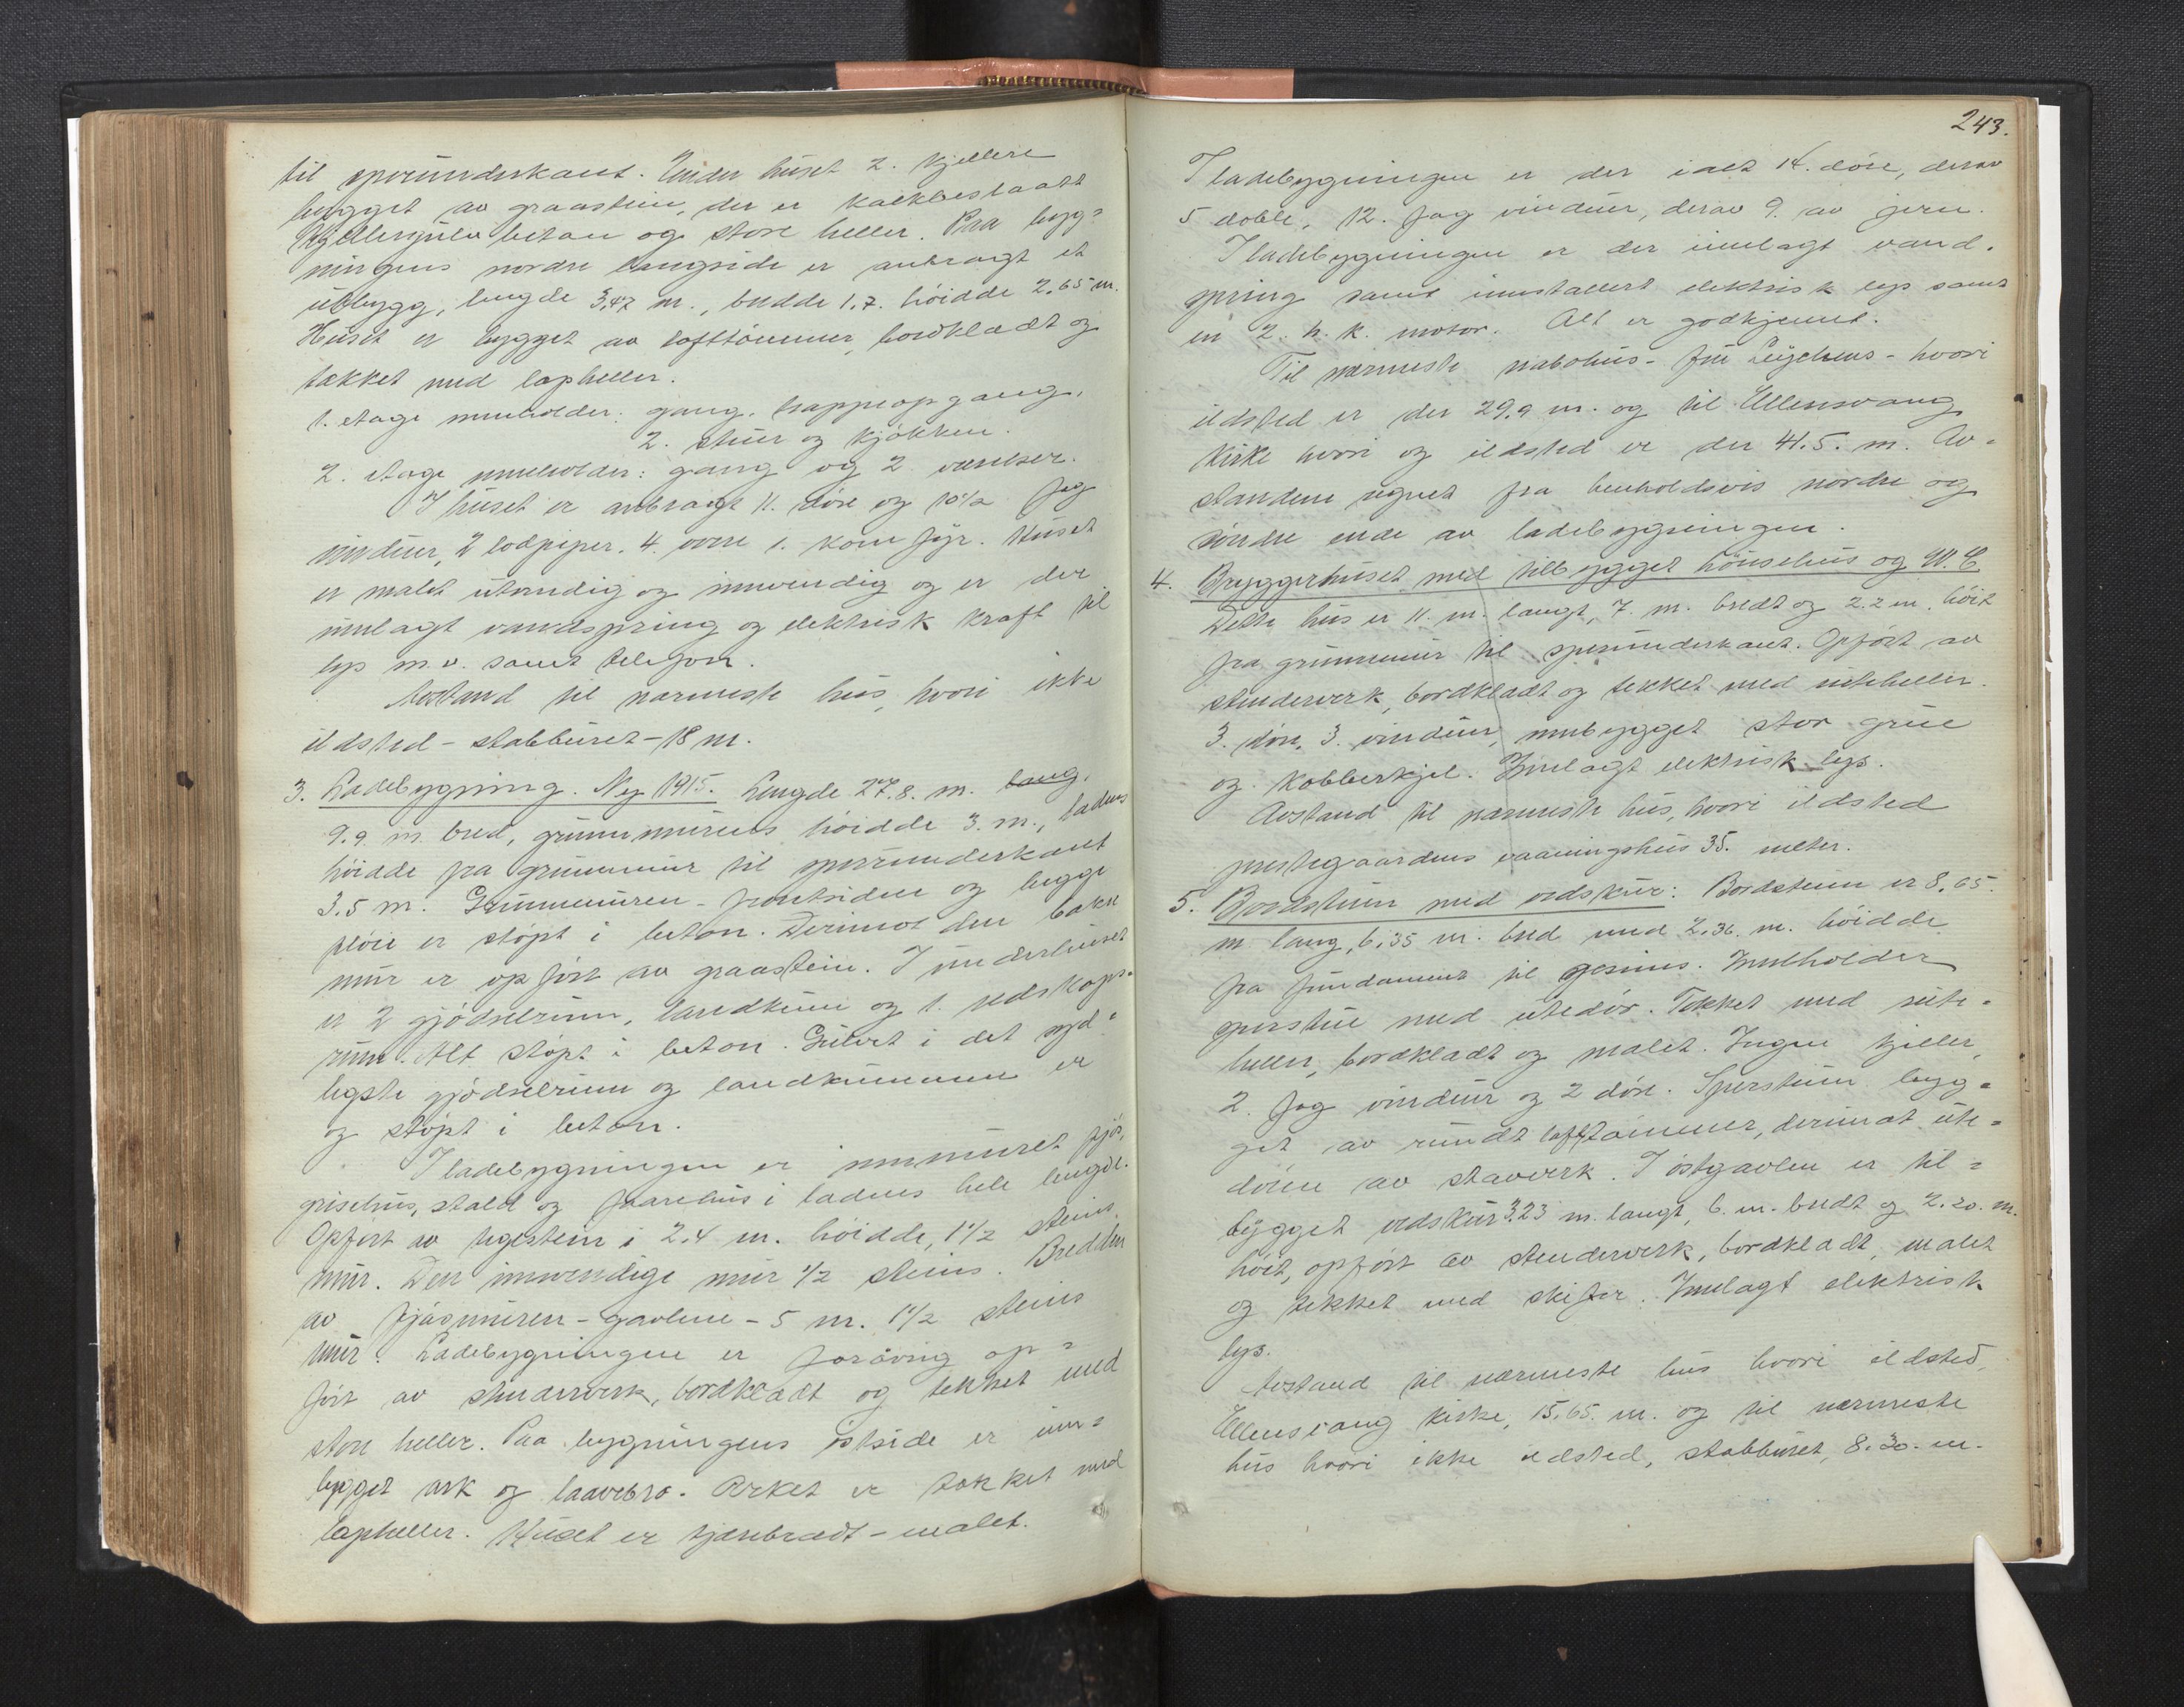 til sperrunderkant. Under huset 2. kjellere
bygget av graastein, der er kalkbeslaatt
Kjellergulv beton og store heller. Paa byg=
ningens nordre langside er anbragt et
utbygg, lengde 3,47 m., bredde 1.7. höidde 2.65 m.
Huset er bygget av lofttömmer, bordkladt og
tækket med lapheller.
1. etage inneholder: gang, trappeopgang,
2. stuer og kjökken.
2. etage inneholder: gang og 2 værelser.
I huset er anbragt 11. döre og 10½ fag
vinduer, 2 lodpiper, 4. ovne 1. komfyr. Huset
er malet utvendig og innvendig og er der
innlagt vandspring og elektrisk kraft til
lys m.v. samt telefon.
Avstand til nærmeste hus, hvori ikke
ildsted - stabburet - 18 m.
3. Ladebygning. Ny 1915. Lengde 27.8. m. lang,
9.9 m. bred, grunnmurens höidde 3. m., ladens
höidde fra grunnmur til sperrunderkant
3.5 m. Grunnmuren - frontsiden og begge
flöie er stöpt i beton. Derimot den bakre
mur er opfört av graastein. I underhuset
er 2 gjödselrum, landkum og 1. redskaps=
rum. Alt stöpt i beton. Gulvet i det syd=
ligste gjödselrum og landkummen er
og stöpt i beton.
I ladebygningen er innmuret fjös,
grisehus, stald og faarehus i ladens hele lengde.
Opfört av teglstein i 2.4 m. höidde, 1½ steins
mur. Den innvendige mur ½ steins. Bredden
av fjösmuren - gavlene - 5 m. 1½ steins
mur. Ladebygningen er forövrig op=
fört av stenderverk, bordkladt og tekket med
store heller. Paa bygningens östside er inn=
bygget ark og laavebro. Arket er tækket med
lapheller. Huset er tjærebredt - malet.
243.
I ladebygningen er der ialt 14. döre, derav
5 doble, 12. fag vinduer, derav 9. av jern.
I ladebygningen er der innlagt vand.
spring samt innstallert elektrisk lys samt
en 2. h. k. motor. Alt er godkjennt.
Til nærmeste nabohus - fru Lügchens - hvori
ildsted er der 29.9 m. og til Ullensvang
Kirke hvori og ildsted er der 41.5. m. Av=
standene regnet fra henholdsvis nordre og
söndre ende av ladebygningen.
4. Bryggerhuset med tilbygget hönsehus og W. C.
Dette hus er 11. m. langt, 7. m. bredt og 2.2 m. höit
fra grunnmur til sperrunderkant. Opfört av
stenderverk, bordkladt og tekket med ruteheller.
3. döre, 3. vinduer, innbygget stor grue
og kobberkjel. Innlagt elektrisk lys.
Avstand til nærmeste hus, hvori ildsted
prestegaardens vaaningshus 35. meter.
5. Borgstuen med vedskur: Borgstuen er 8.65.
m. lang, 6.35 m. bred med 2.36. m. höidde
fra fundament til gesims. Innholder
sperstue med utedör. Tekket med rute=
heller, bordkladt og malet. Ingen kjeller,
2. fag vinduer og 2 döre. Sperstuen byg=
get av rundt lofttömmer, derimot ute=
dören av staverk. I östgavlen er til=
bygget vedskur 3.23 m. langt, 6. m. bredt og 2.20. m.
höit, opfört av stenderverk, bordkladt, malet
og tekket med skifer. Innlagt elektrisk
lys.
Avstand til nærmeste hus hvori ildsted,
Ullensvang kirke, 15.65. m. og til nærmeste
hus hvori ikke ildsted, stabburet, 8.30. m.